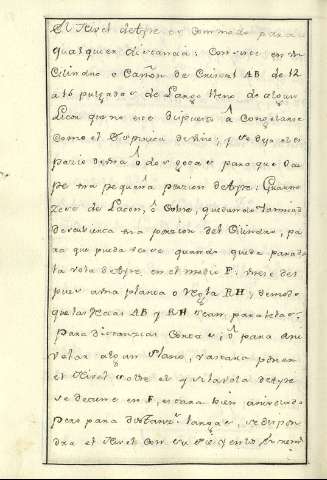 El Nivel de Ayre es Commodo para a
qualquier distancia: Consiste en un
Cilindro o Cañon de Cristal AB de 12
á 16 pulgadas de Largo lleno de algun
Licor que no este dispuesto á Congelarse
como el Espiritu de Vino; y se deja el es
pazio de una ô dos gotas para que Ocu
pe una pequeña porcion de Ayre: Guarne
zese de Laton, ô Cobre, quedando
descubierta una porcion del Cilindro, pa
ra que pueda verse quando queda parada
la vola de Ayre en el medio F: Unese des
pues a una planca o Regla RH; de modo
que las Rectas AB y RH sean paralelas.
Para distancias Cortas; ô para ni
velar algun Plano, vastara poner
el Nivel sobre el y si la vola de Ayre
se detiene en F, estara bien anivelado
pero para distanz.s largas, se dispon
dra el Nivel con su Pie y en los